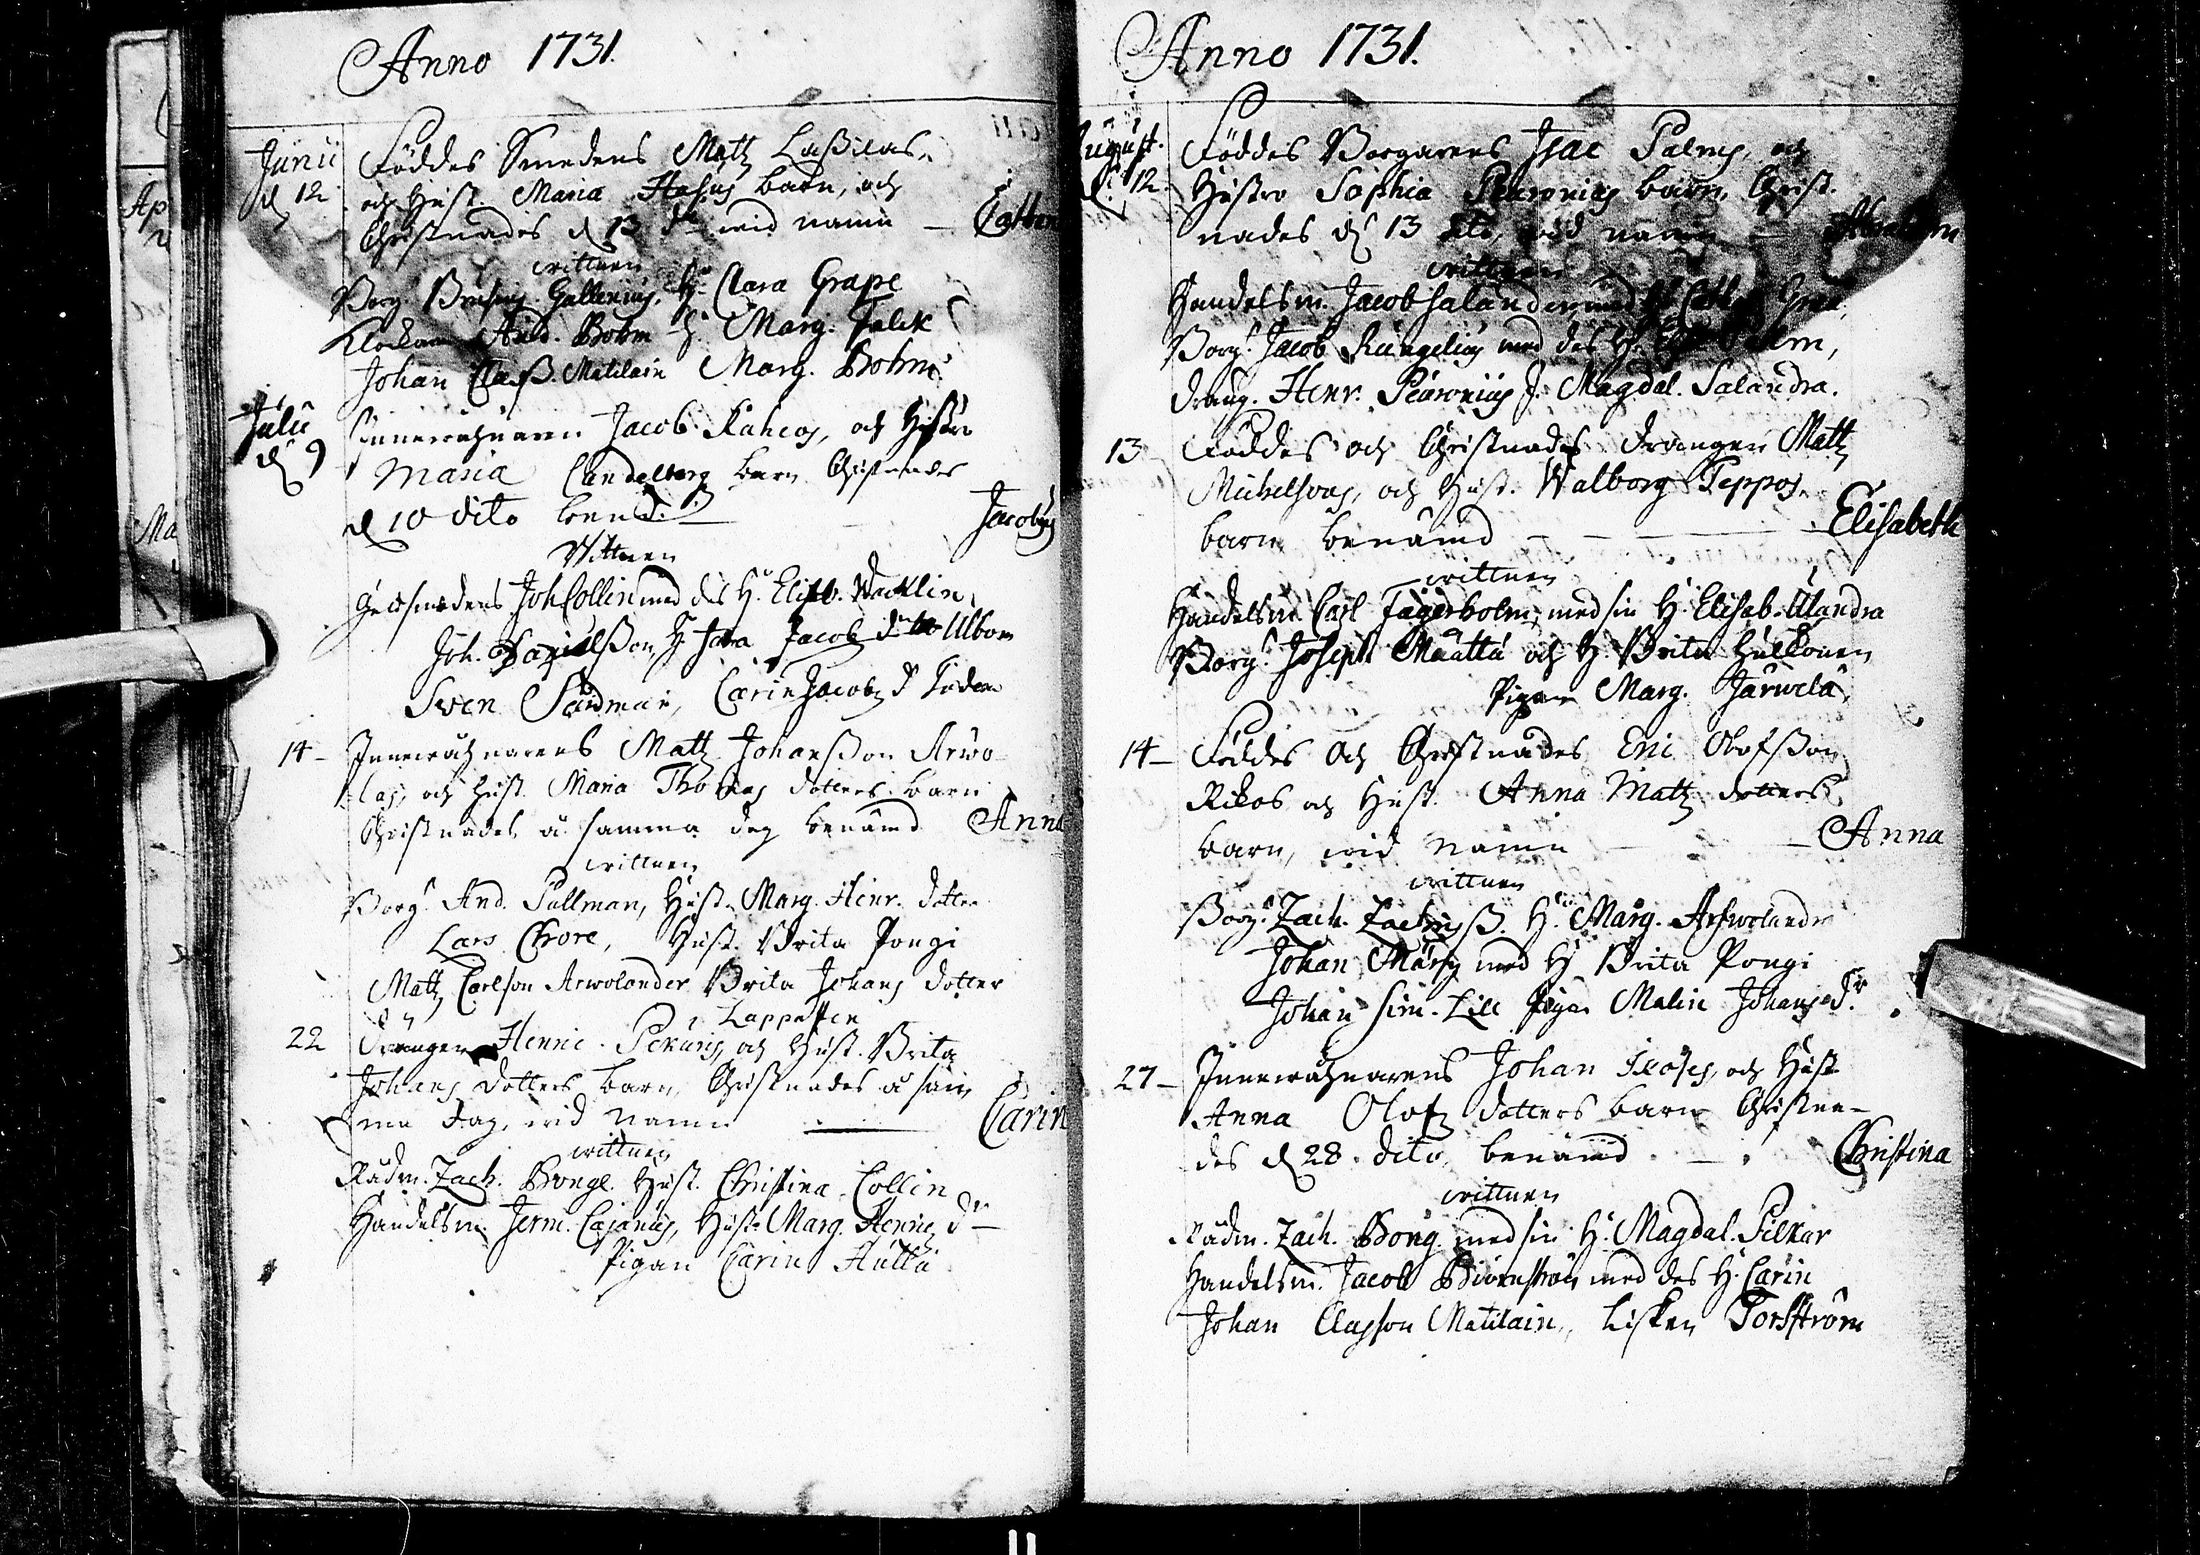 Anno 1731.
Junii
d 12
Föddes Smedens Matz Laßilas,
och Hust. Maria barn, och
Christnades d 13 dito wid namn — Cathar
wittnen
Borg. Gallenius, H. Clara Grape
Klockaren And. Bohm H. Marg. Falck
Johan Claß. Matilain Marg. Bohm
Julii
d 9
Innerwåhnaren Jacob Kahcos, och Hustro
Maria Candelberg barn Christnades
d 10 dito bend. — Jacobus
Wittnen
Joh Collin med des H. Elisab. Wacklin
Joh. Danielßon Jacob
Swen Sandman, Carin Jacobz d
14 — Innerwåhnarens Matz Johanßon Arwo-
las, och Hust. Maria Thomas dotters barn
Christnades å samma dag benämd Anna
wittnen
Borg. And. Pullman, Hust. Marg. Henr. dotter
Lars Chore, Hust. Brita Pongi
Matz Carlson Arwolander Brita Johans dotter
Lappsken
22 Drängen Henric Pekuris, och Hust. Brita
Johans dotters barn, Christnades å sam
ma dag, wid namn — Carin
wittnen
Rådm. Zach. Bonge Hust. Christina Collin
Handelsm. Jerm. Cajanus, Hust. Marg. Henric dr
Pigan Carin Hutta
Anno 1731.
August.
d. 12.
Föddes Borgarens Isac Palmes, och
Hustro Sophia Pearonius barn, Christ-
nades d. 13 dito, wid namn — Abraham
wittnen
Handelsm. Jacob Salander, med H.
Borg. Jacob Rungelius med des H.
dräng. Henr. Pearonius J. Magdal. Salandra.
13 — Föddes och Christnades drängen Matz
Michelsons, och Hust. Walborg Peppos.
barn benämd — — — Elisabeth
wittnen
Handelsm. Carl Fagerholm, med sin H. Elisab. Ulandra
Borg. Joseph Määttä och H. Brita Hulkonen
Pigan Marg. Järwelä
14 — Föddes och Christnades Eric Olofßon
Rikos och Hust. Anna Matz dotters
barn, wid namn — Anna
wittnen
Borg. Zach. Zachriß. H. Marg. Arfwolandr
Johan med H. Brita Pongi
Johan Sim. Lill Pigan Malin Johans dr.
27 — Innerwåhnarens Johan, och Hust
Anna Olofz dotters barn Christna-
des d 28. dito, benämd — Christina
wittnen
Rådm. Zach. Bong. med sin H. Magdal. Pilkar
Handelsm. Jacob Biörnström med des H. Carin
Johan Classon Matilain, Lisken Forsström